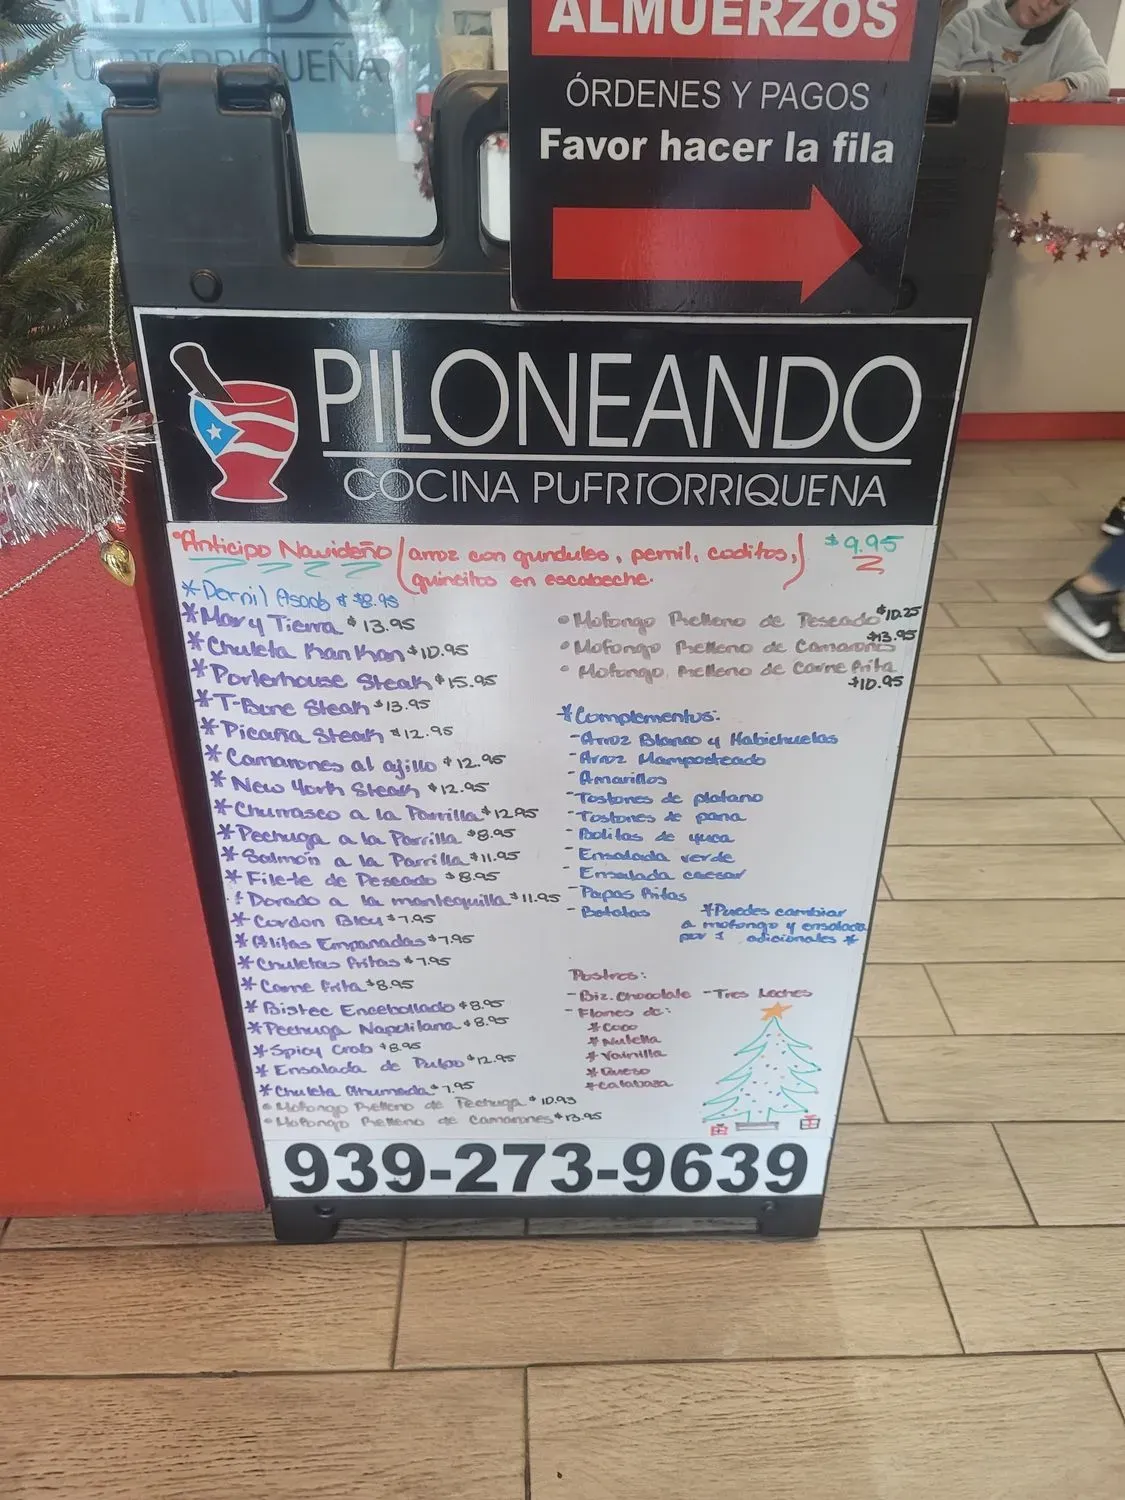 ALMUERZOS
ÓRDENES Y PAGOS
Favor hacer la fila
PUERTORRIQUEÑA
PILONEANDO
COCINA PUERTORRIQUEÑA
*Anticipo Navideño (arroz con gundules, pernil, coditos, $9.95
guineitos en escabeche.)
*Pernil Asado $8.95
*Mar y Tierra $13.95
*Chuleta Kan Kan $10.95
*Porterhouse Steak $15.95
*T-Bone Steak $13.95
*Picaña Steak $12.95
*Camarones al ajillo $12.95
*New York Steak $12.95
*Churrasco a la Parrilla $12.95
*Pechuga a la Parrilla $8.95
*Salmón a la Parrilla $11.95
*Filete de Pescado $8.95
*Dorado a la mantequilla $11.95
*Cordon Bleu $7.95
*Alitas Empanadas $7.95
*Chuletas fritas $7.95
*Carne frita $8.95
*Bistec Encebollado $8.95
*Pechuga Napolitana $8.95
*Spicy Crab $8.95
*Ensalada de Pulpo $12.95
*Chuleta Ahumada $7.95
•Mofongo Relleno de Pechuga $10.95
•Mofongo Relleno de Camarones $13.95
•Mofongo Relleno de Pescado $10.25
•Mofongo Relleno de Camarones $13.95
•Mofongo Relleno de Carne frita
$10.95
*Complementos:
-Arroz Blanco y Habichuelas
-Arroz Mamposteado
-Amarillos
-Tostones de platano
-Tostones de pana
-Bolitas de yuca
-Ensalada verde
-Ensalada caesar
-Papas fritas
-Batatas
*Puedes cambiar
a mofongo y ensalada
por 1 adicionales*
Postres:
-Biz. Chocolate -Tres Leches
-Flanes de:
*Coco
*Nutella
*Vainilla
*Queso
*Calabaza
939-273-9639